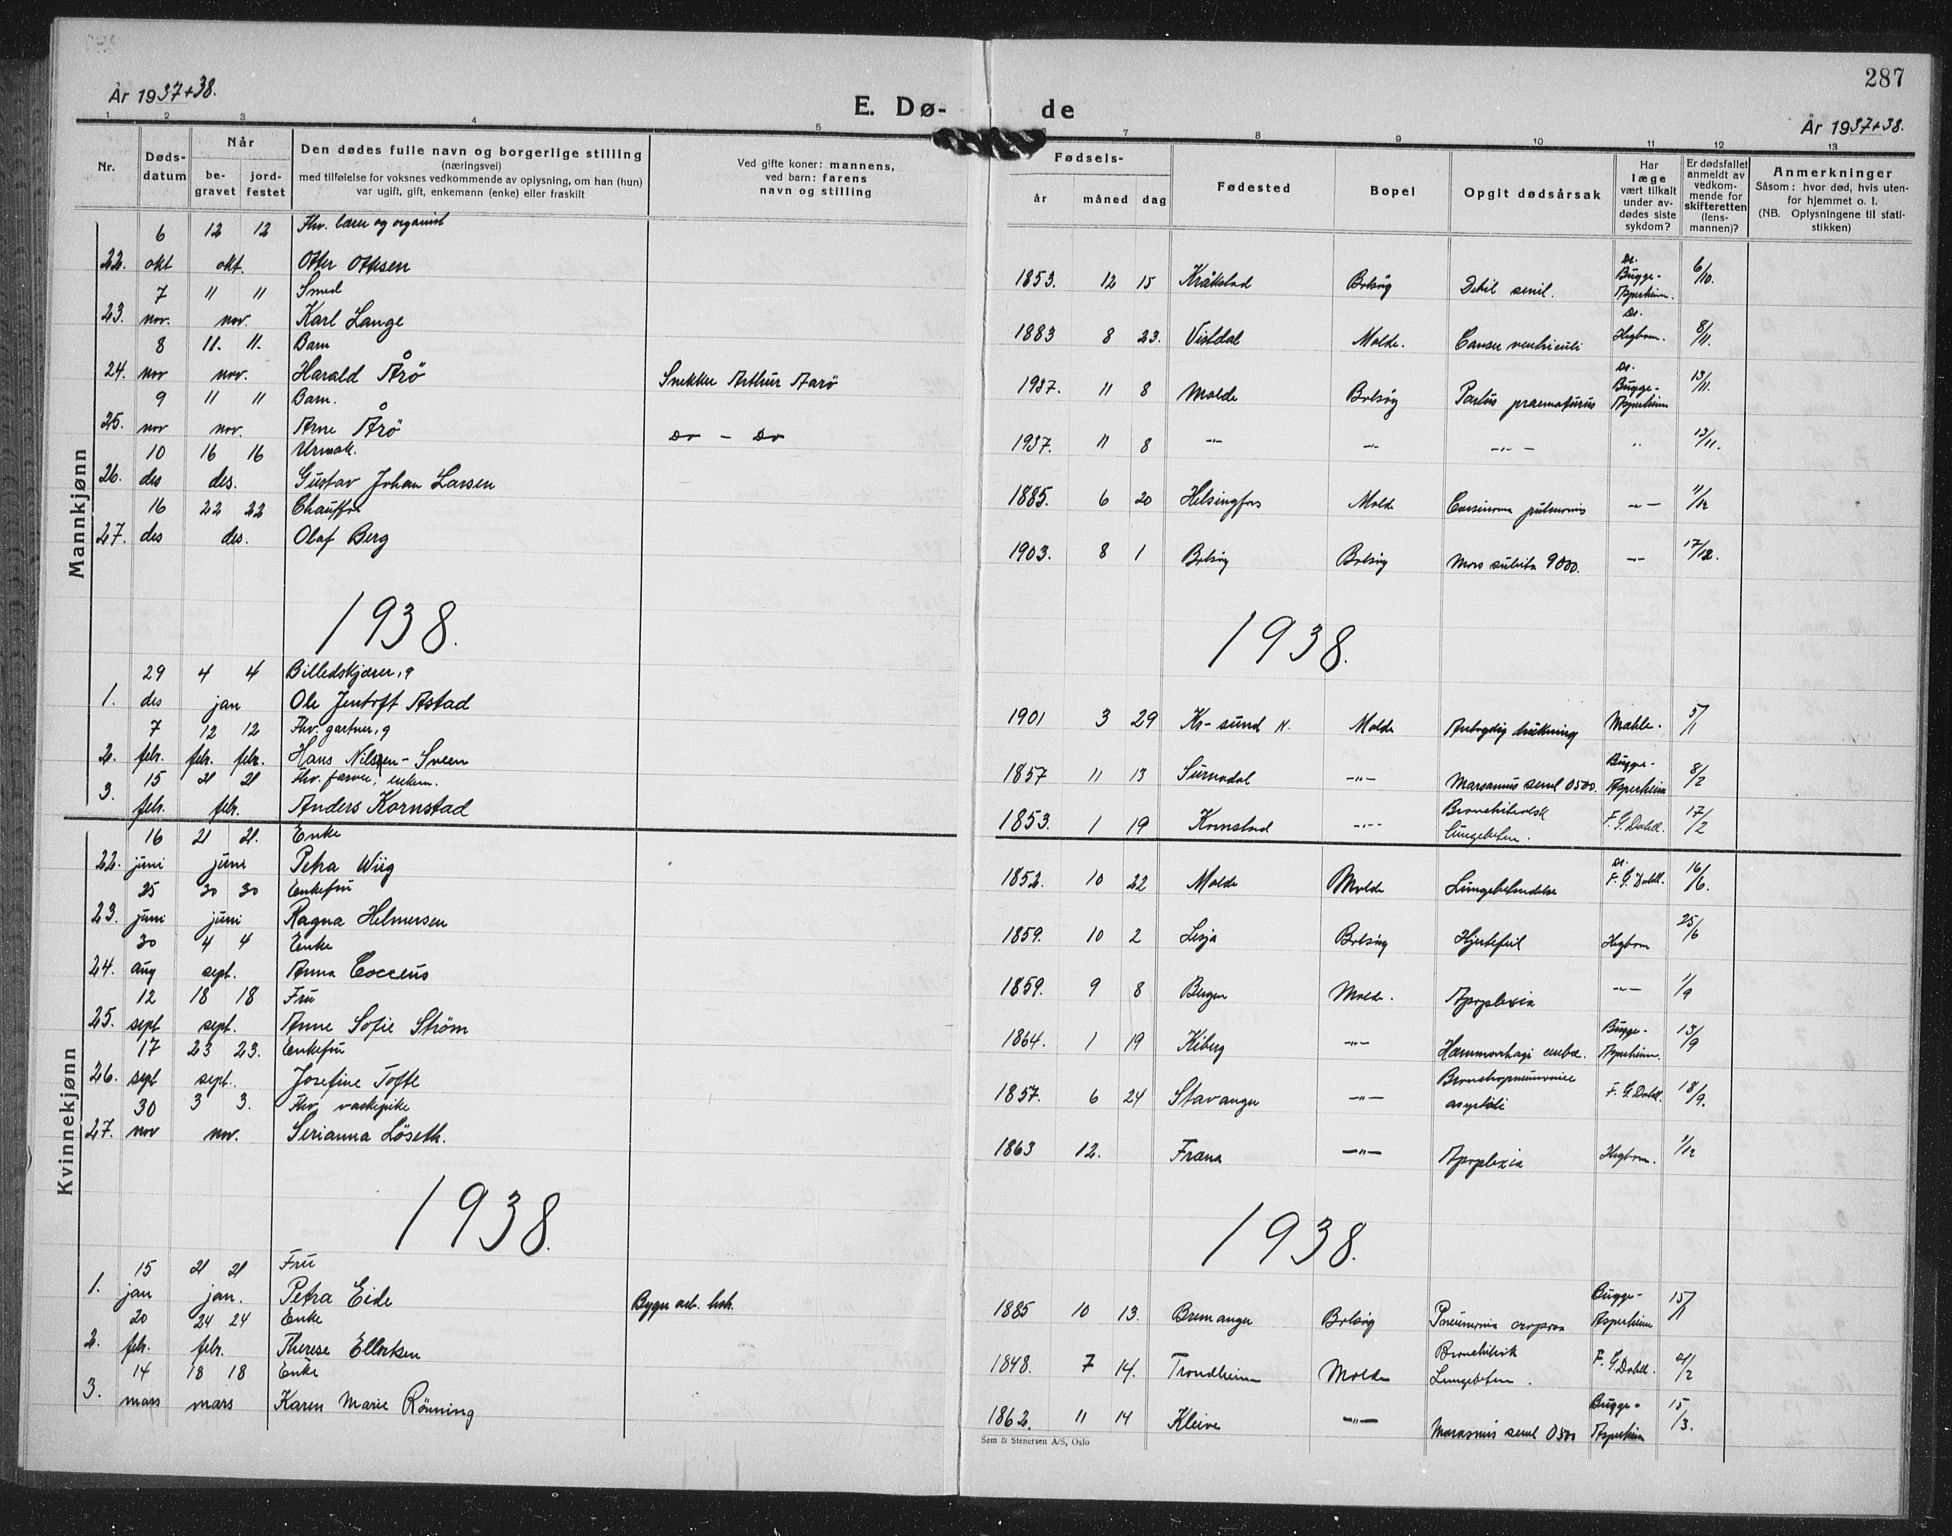 287
År 1937+38.
E. Dø-
de
År 1937+38.
1 2 3 4 5 6 7 8 9 10 11 12 13
Nr.
Døds-
datum
Når
be-
gravet
jord-
festet
Den dødes fulle navn og borgerlige stilling
(næringsvei)
med tilføielse for voksnes vedkommende av oplysning, om han (hun)
var ugift, gift, enkemann (enke) eller fraskilt
Ved gifte koner: mannens,
ved barn: farens
navn og stilling
Fødsels-
år måned dag
Fødested
Bopel
Opgit dødsårsak
Har
læge
vært tilkalt
under av-
dødes siste
sykdom?
Er dødsfallet
anmeldt av
vedkom-
mende for
skifteretten
(lens-
mannen)?
Anmerkninger
Såsom: hvor død, hvis uten-
for hjemmet o. l.
(NB. Oplysningene til stati-
stikken)
Mannkjønn
6 12 12 Fhv. lærer og organist
22. okt okt. Otter Ottesen 1853. 12 15 Kråkstad Bolsøy Debil senil. Dr. Bugge-Asperheim. 6/10.
7 11 11 Smed
23. nov. nov. Karl Lange 1883 8 23. Vistdal Molde. Cancer ventriculi Dr. Høgbom. 8/11.
8 11. 11. Barn
24. nov nov. Harald Årö Snekker Arthur Aarö 1937. 11 8 Molde Bolsøy Partus praematurus Dr. Bugge-Asperheim 13/11.
9 11 11 Barn.
25. nov nov. Arne Årö Do - Do 1937. 11 8 -"- -"- -"- " 13/11.
10 16 16 Urmak.
26. des des. Gustav Johan Larsen 1885. 6 20 Helsingfors Molde Carsinoma pulmonis -"- 11/12
16 22 22 Chauffør
27. des des. Olaf Berg 1903. 8 1 Bolsøy Bolsøy Mors subita 9000. -"- 17/12.
1938. 1938.
29 4 4 Billedskjærer, g
1. des jan Ole Jentoft Astad 1901 3 29 Kr-sund N. Molde drukning Mæhle. 5/1
7 12 12 Fhv. gartner, g
2. febr. febr. febr. Hans Nilsen-Sveen 1857 11 13 Surnadal -"- Marasmus senil 0500. Bugge-Asperheim 8/2
15 21 21 Fhv. farver, enkem.
3. febr. febr. Anders Kornstad 1853. 1 19 Kornstad -"- Bronchitisk Lungebeten. F. G. Dahl. 17/2
Kvinnekjønn
16 21 21. Enke
22. juni juni Petra Wiig 1852. 10 22 Molde Molde Lungebetendelse Dr. F. G. Dahl. 16/6.
25 30 30 Enkefru
23. juni juni Ragna Helmersen 1859. 10 2 Lesja Bolsøy Hjertefeil Høgbom 25/6
30 4 4 Enke
24. aug sept. Anna Cocceus 1859. 9 8 Bergen Molde. Apoplexia -"- 1/9
12 18 18 Fru
25. sept sept. Anne Sofie Strøm 1864. 1 19 Kiberg -"- Hæmmorrhagi cerebri. Bugge-Asperheim. 13/9
17 23 23. Enkefru
26. sept sept. Josefine Tofte 1857. 6 24 Stavanger -"- Bronchopneumonie F. G. Dahl. 18/9.
30 3 3. Fhv. vaskepike
27. nov nov. Serianna Løseth. 1863 12. Fræna -"- Apoplexia Høgbom. 1/12
1938. 1938.
15 21 21 Fru
1. jan jan. Petra Eide 1885 10 13. Bremanger Bolsøy Pneumonia crouposa Bugge-Asperheim 15/1
20 24 24 Enke
2. febr. febr. Therese Ellertsen 1848. 7 14. Trondheim Molde Bronchitisk Lungebeten. F. G. Dahl. 21/2
14 18 18 Enke
3. mars mars Karen Marie Rönning 1862. 11 14 Kleive -"- Marasmus senil 0500 Bugge-Asperheim 15/3.
Sem & Stenersen A/S, Oslo